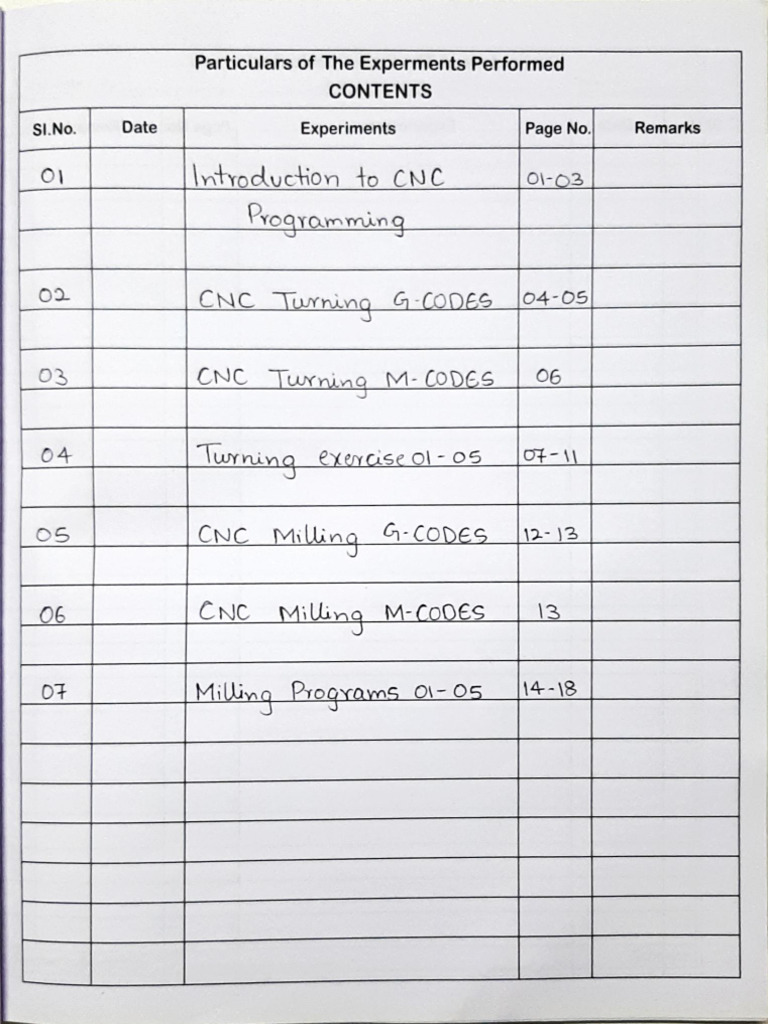 Particulars of The Experments Performed
CONTENTS
Sl.No. Date Experiments Page No. Remarks
01 Introduction to CNC 01-03
Programming
02 CNC Turning G-CODES 04-05
03 CNC Turning M-CODES 06
04 Turning exercise 01-05 07-11
05 CNC Milling G-CODES 12-13
06 CNC Milling M-CODES 13
07 Milling Programs 01-05 14-18